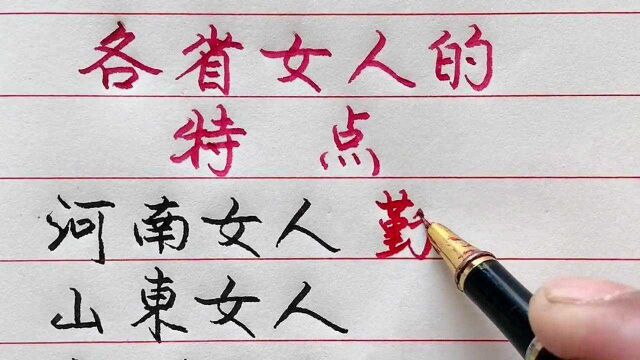 各省女人的
特点
河南女人 勤
山東女人